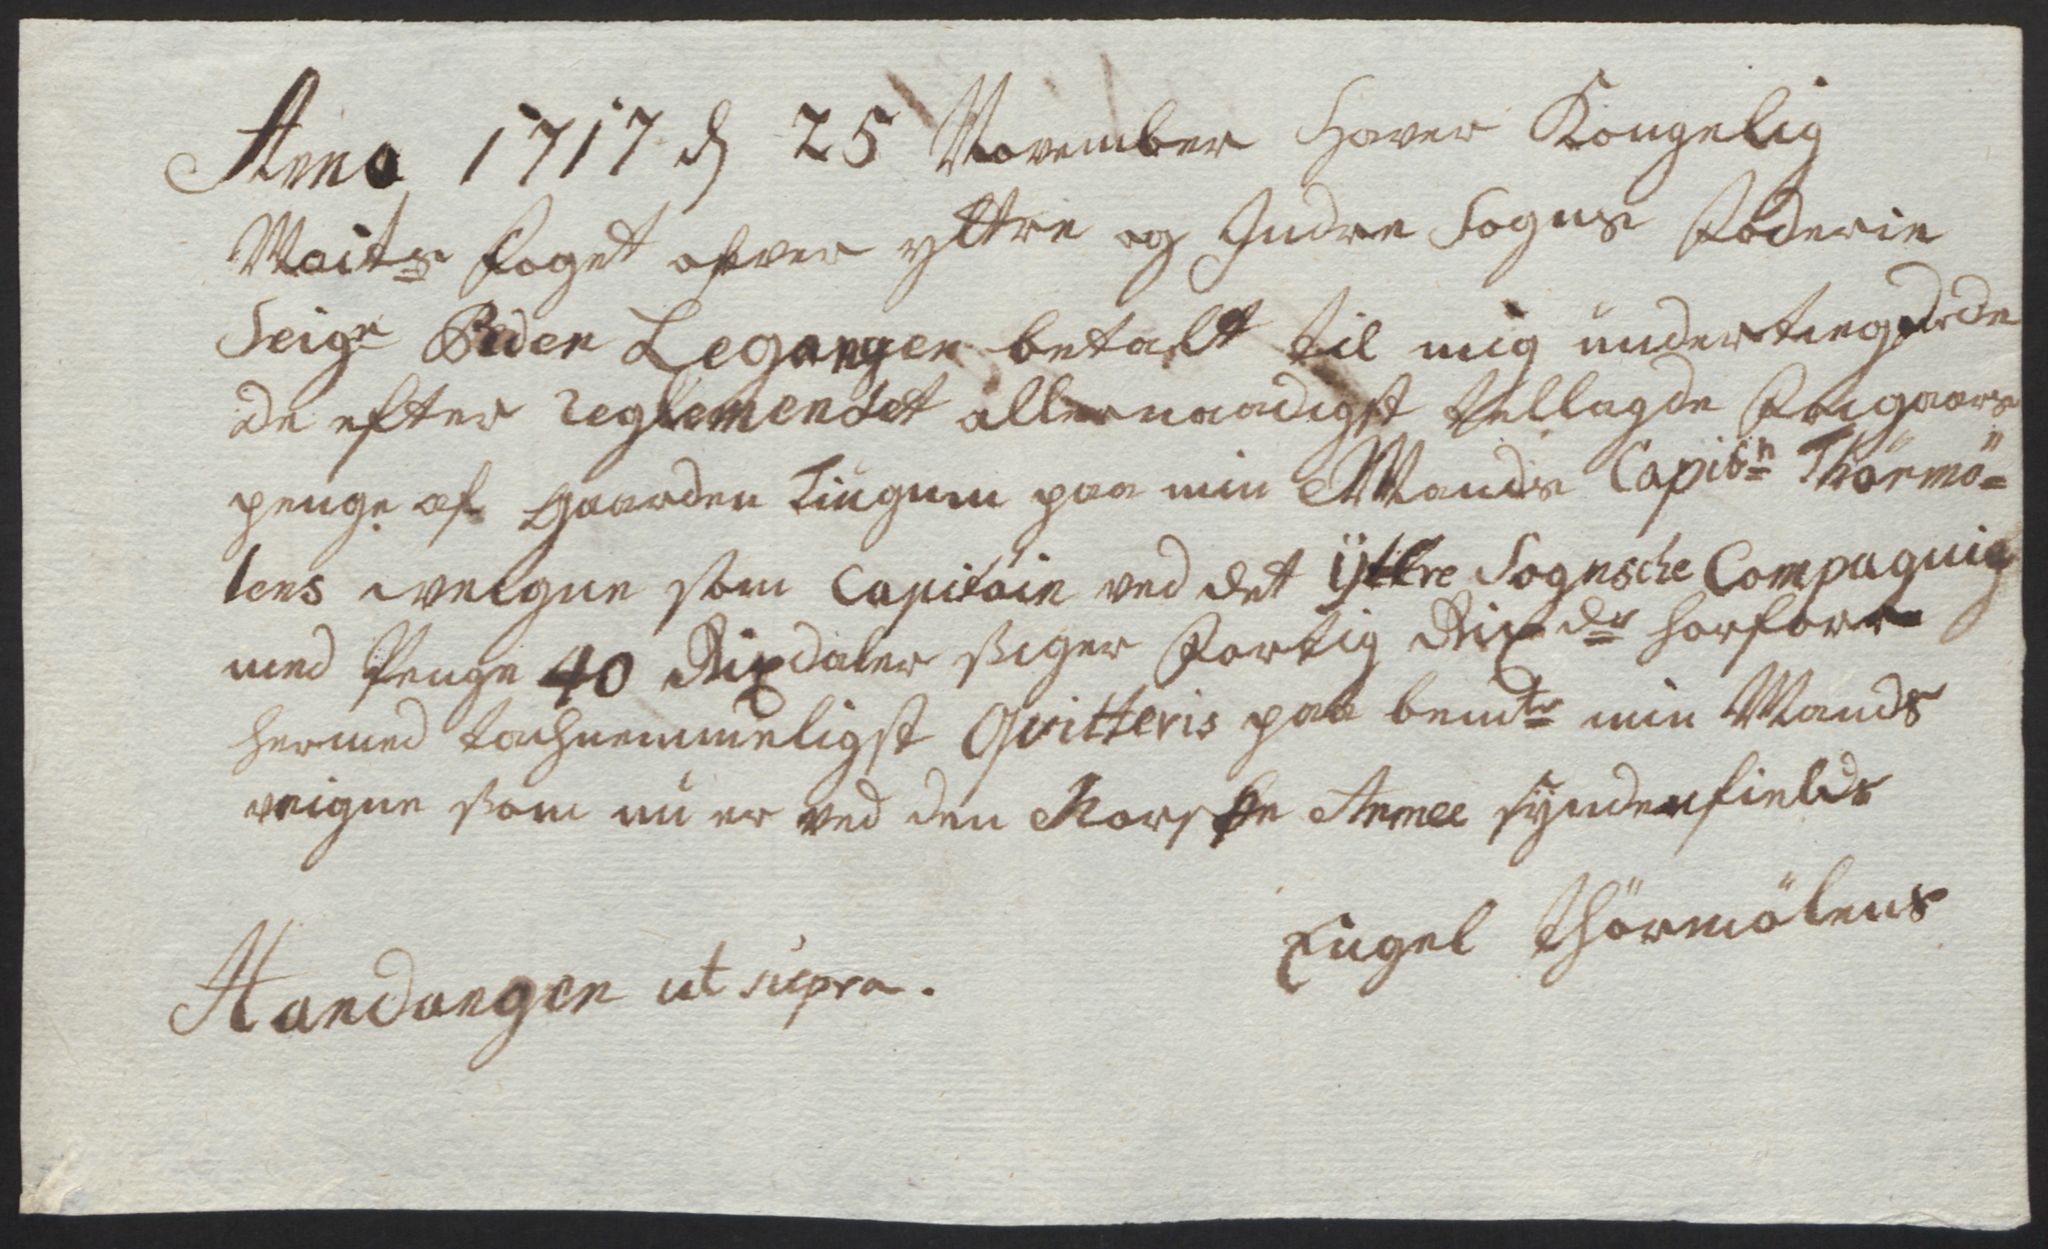 Anno 1717 d 25 November Haver Kongelig
Maits foget ofver yttre og Indre Sogns foderie
Seigr Peder Legangen betalt til mig underteignede
de efter Reglementet allernaadigst tillagde Frigaars
penge af Gaarden Tiugum paa min Mands Capitn Thörmö-
lens weigne som Capitain ved det Yttre Sognsche Compagnie
med Penge 40 Rixdaler siger Fortig Rixdr horforr
hermed tachnemmeligst Qvitteris paa bemte min Mands
veigne som nu er ved den Norske Armee syndenfields
Engel Thörmölens
Aardangen ut supra.